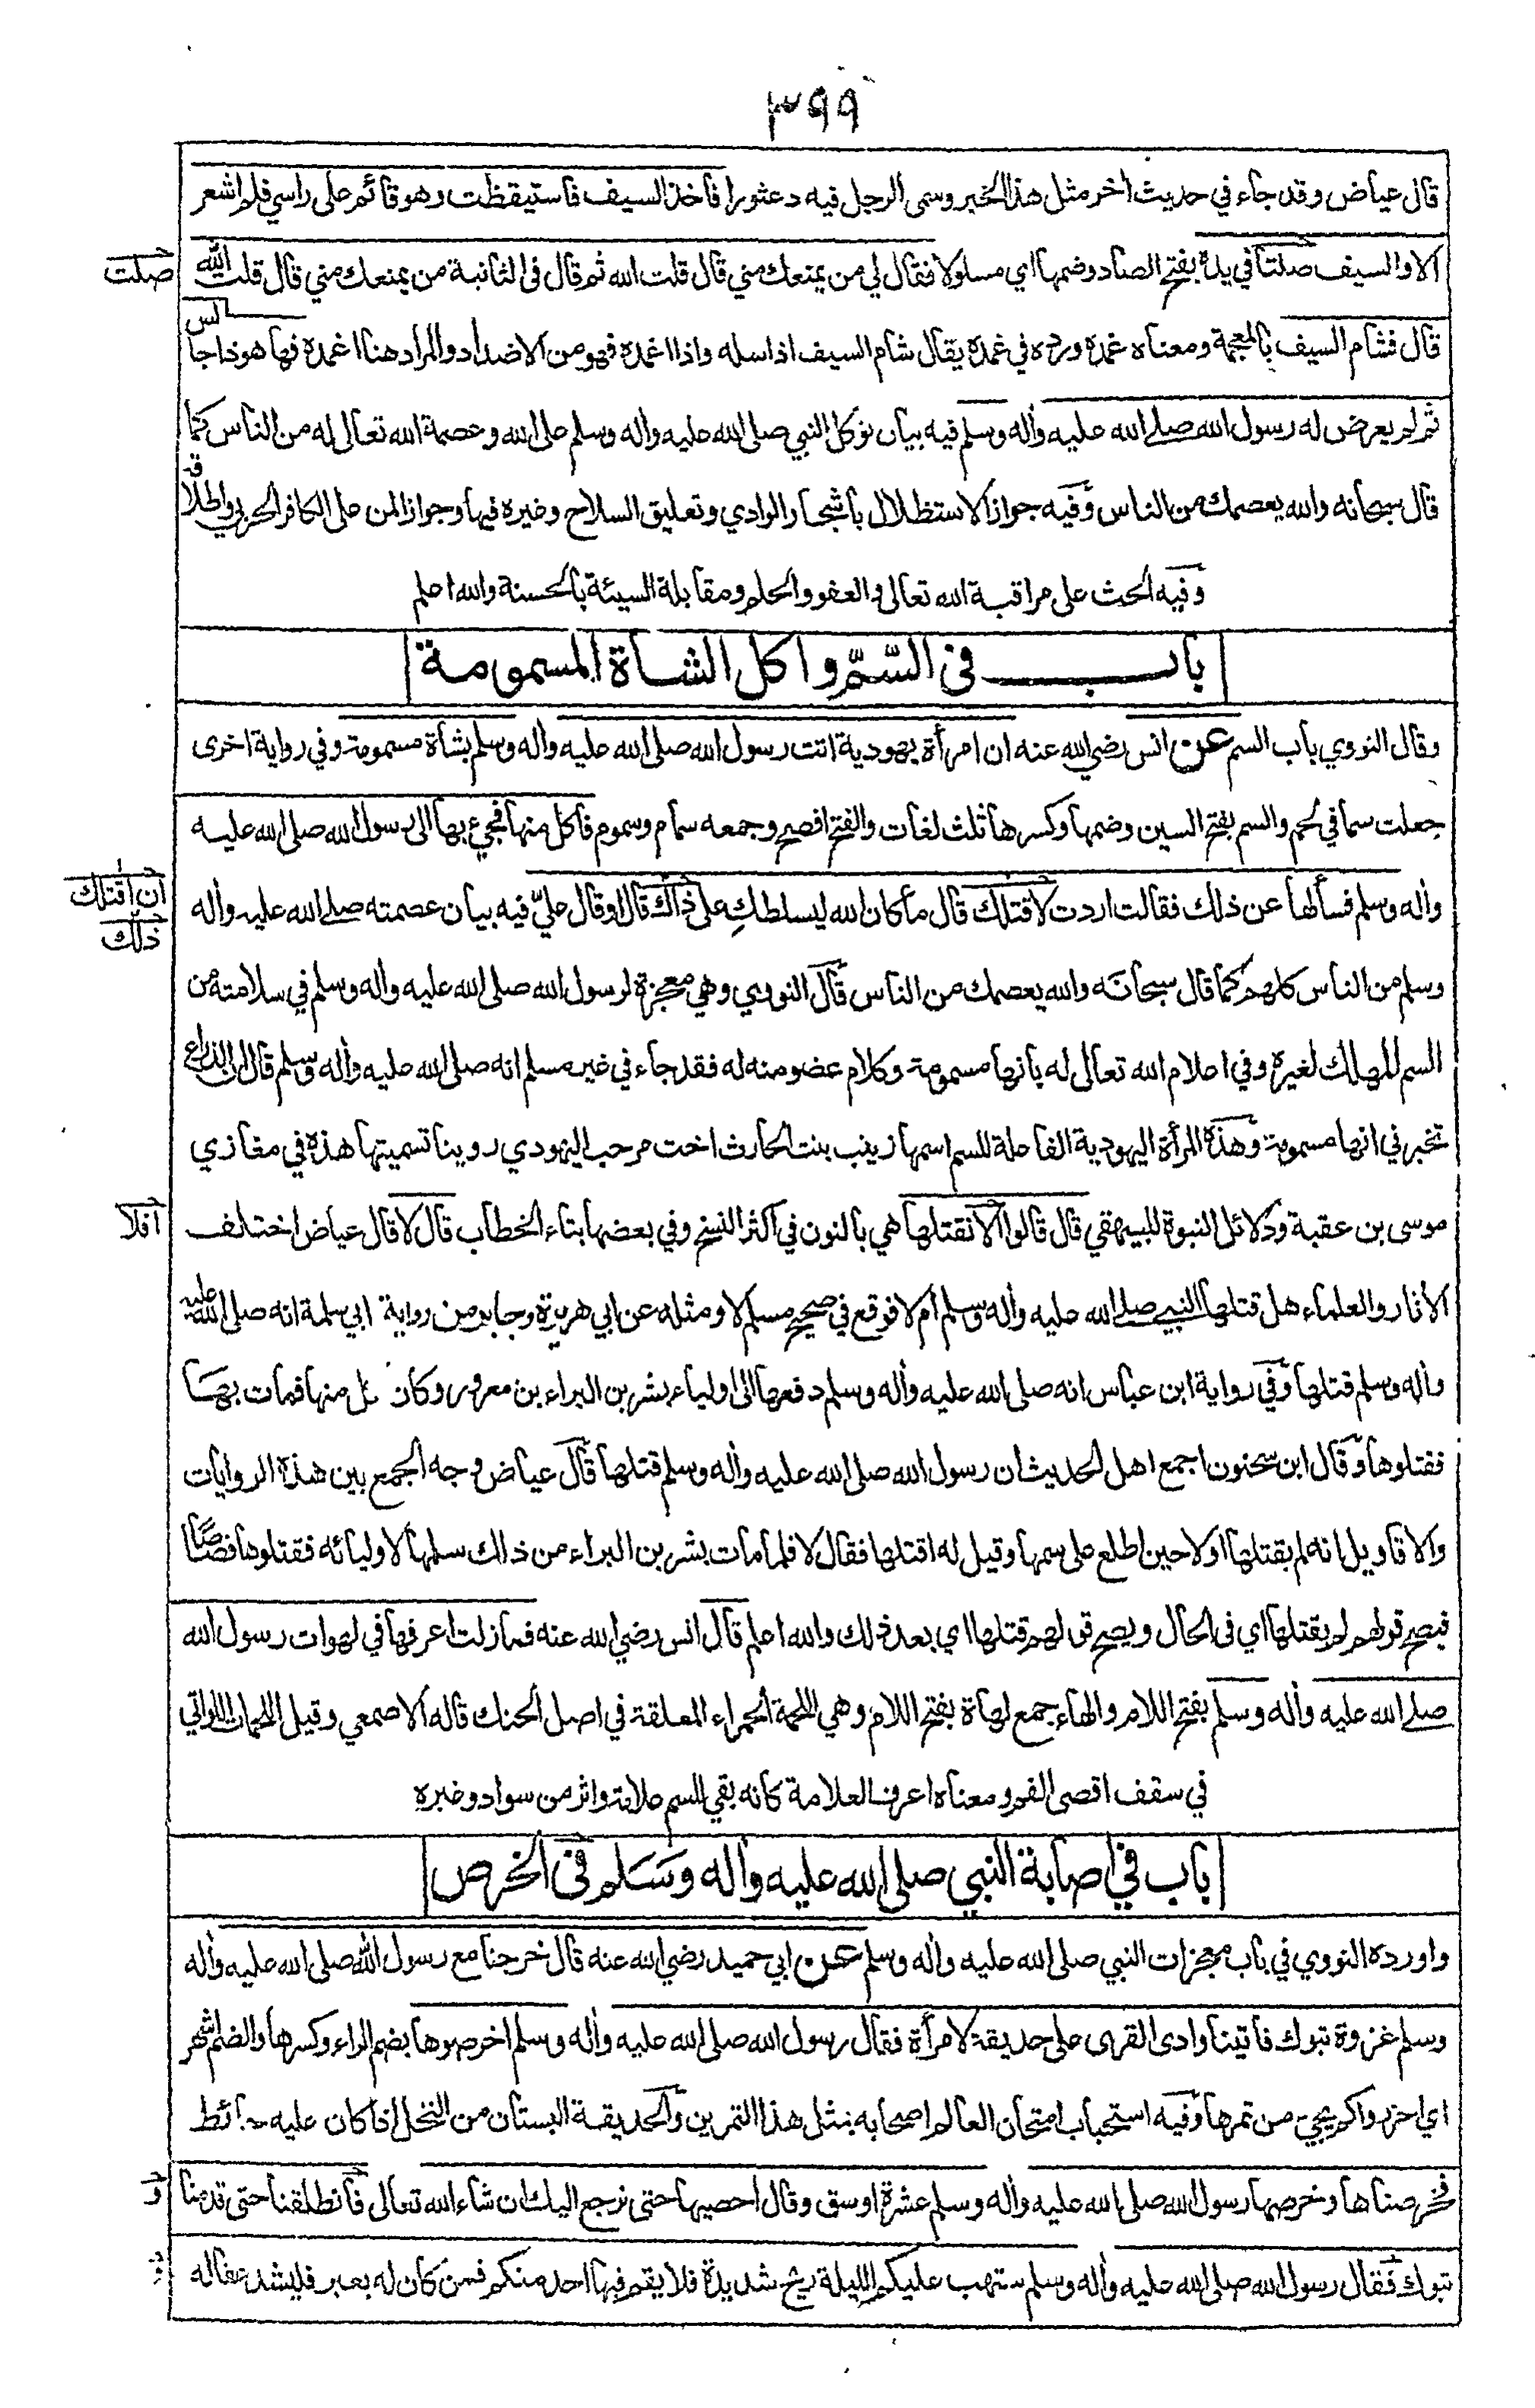 ٣٩٩
قال عياض وقد جاء في حديث اخر مثل هذا الخبر وسمى الرجل فيه دعثورا فاخذ السيف فاستيقظت وهو قائم على راسي فلم اشعر
الا والسيف صلتا في يده بفتح الصاد وضمها اي مسلولا فقال لي من يمنعك مني قال قلت الله ثم قال فى الثانية من يمنعك مني قال قلت الله
صلت
قال فشام السيف بالمعجمة ومعناه غمده ورده في غمده يقال شام السيف اذا سله واذا اغمده فهو من الاضداد والمراد هنا اغمده فها هو ذا جالس
ثم لم يعرض له رسول الله صلى الله عليه وأله وسلم فيه بيان توكل النبي صلى الله عليه وأله وسلم على الله وعصمة الله تعالى له من الناس كما
قال سبحانه والله يعصمك من الناس وفيه جواز الاستظلال باشجار الوادي وتعليق السلاح وغيره فيها وجواز المن على الكافر الحربي واطلاقه
وفيه الحث على مراقبة الله تعالى والعفو والحلم ومقابلة السيئة بالحسنة والله اعلم
باب فى السّمّ واكل الشاة المسمومة
وقال النووي باب السم عن انس رضي الله عنه ان امرأة يهودية اتت رسول الله صلى الله عليه وأله وسلم بشاة مسمومة وفي رواية اخرى
جعلت سما في لحم والسم بفتح السين وضمها وكسرها ثلث لغات والفتح افصح وجمعه سمام وسموم فاكل منها فجيء بها الى رسول الله صلى الله عليه
وأله وسلم فسألها عن ذلك فقالت اردت لاقتلك قال ما كان الله ليسلطكِ على ذاك قال او قال عليّ فيه بيان عصمته صلى الله عليه وأله
ان اقتلك
ذلك
وسلم من الناس كلهم كما قال سبحانه والله يعصمك من الناس قال النووي وهي معجزة لرسول الله صلى الله عليه وأله وسلم في سلامته من
السم المهلك لغيره وفي اعلام الله تعالى له بانها مسمومة وكلام عضو منه له فقد جاء في غير مسلم انه صلى الله عليه وأله وسلم قال ان الذراع
تخبرني انها مسمومة وهذه المرأة اليهودية الفاعلة للسم اسمها زينب بنت الحارث اخت مرحب اليهودي روينا تسميتها هذه في مغازي
موسى بن عقبة ودلائل النبوة للبيهقي قال قالوا الا نقتلها هي بالنون في اكثر النسخ وفي بعضها بتاء الخطاب قال لا قال عياض اختلف
افلا
الاثار والعلماء هل قتلها النبي صلى الله عليه وأله وسلم ام لا فوقع في صحيح مسلم لا ومثله عن ابي هريرة وجابر ومن رواية ابي سلمة انه صلى الله عليه
وأله وسلم قتلها وفي رواية ابن عباس انه صلى الله عليه وأله وسلم دفعها الى اولياء بشر بن البراء بن معرور وكان منها فمات بها
فقتلوها وقال ابن سحنون اجمع اهل الحديث ان رسول الله صلى الله عليه وأله وسلم قتلها قال عياض وجه الجمع بين هذه الروايات
والاقاويل انه لم يقتلها اولا حين اطلع على سمها وقيل له اقتلها فقال لا فلما مات بشر بن البراء من ذلك سلمها لاوليائه فقتلوها قصاصًا
فيصح قولهم لم يقتلها اي فى الحال ويصح قولهم قتلها اي بعد ذلك والله اعلم قال انس رضي الله عنه فما زلت اعرفها في لهوات رسول الله
صلى الله عليه وأله وسلم بفتح اللام والهاء جمع لهاة بفتح اللام وهي اللحمة الحمراء المعلقة في اصل الحنك قاله الاصمعي وقيل اللحمات اللواتي
في سقف اقصى الفم ومعناه اعرف العلامة كانه بقي للسم علامة واثر من سواد وغيره
باب في اصابة النبي صلى الله عليه وأله وسَلم فى الخرص
واورده النووي في باب معجزات النبي صلى الله عليه وأله وسلم عن ابي حميد رضي الله عنه قال خرجنا مع رسول الله صلى الله عليه وأله
وسلم غزوة تبوك فاتينا وادى القرى على حديقة لامرأة فقال رسول الله صلى الله عليه وأله وسلم اخرصوها بضم الراء وكسرها والضم اشهر
اي احزروا كم يجيء من تمرها وفيه استحباب امتحان العالم اصحابه بمثل هذا التمرين والحديقة البستان من النخل اذا كان عليه حائط
فخرصناها وخرصها رسول الله صلى الله عليه وأله وسلم عشرة اوسق وقال احصيها حتى نرجع اليك ان شاء الله تعالى فانطلقنا حتى قدمنا
و
تبوك فقال رسول الله صلى الله عليه وأله وسلم ستهب عليكم الليلة ريح شديدة فلا يقم فيها احد منكم فمن كان له بعير فليشد عقاله